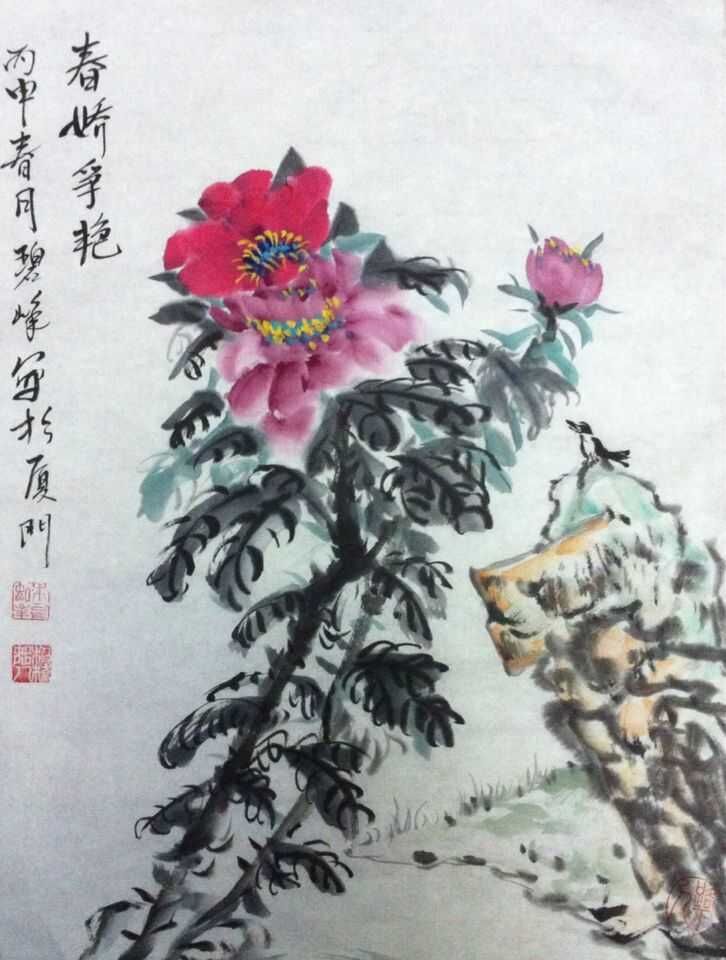 春娇争艳
丙申春月碧峰写於厦門